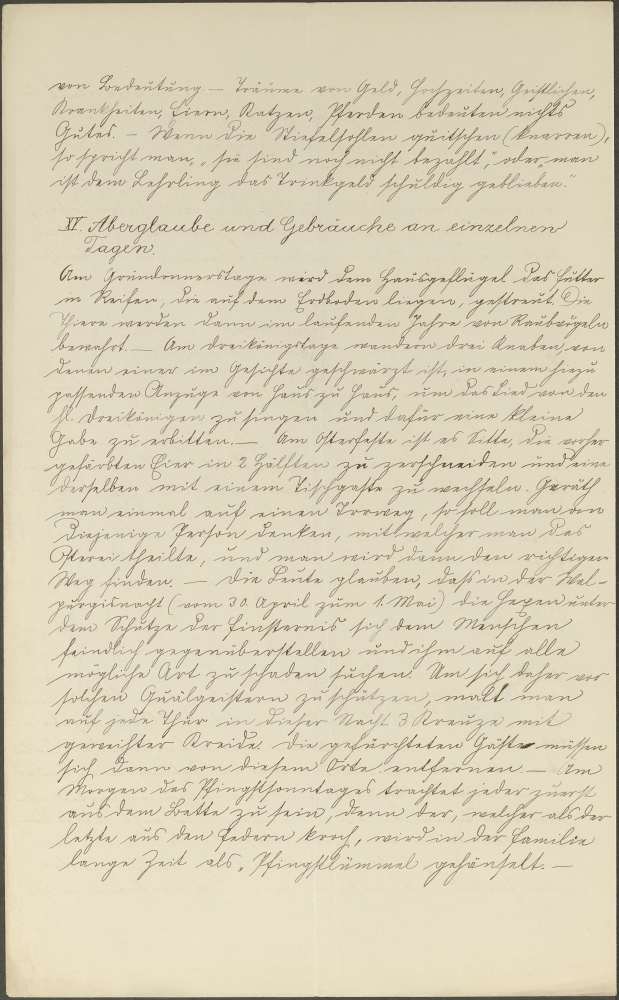 von Bedeutung. — Träume von Geld, Hochzeiten, Geistlichen,
Krankheiten, Eiern, Katzen, Pferden bedeuten nichts
Gutes. — Wenn die Stiefelsohlen quitschen (knarren),
so spricht man, „sie sind noch nicht bezahlt", oder „man
ist dem Lehrling das Trinkgeld schuldig geblieben."
XV. Aberglaube und Gebräuche an einzelnen
Tagen.
Am Gründonnerstage wird dem Hausgeflügel das Futter
in Reifen, die auf dem Erdboden liegen, gestreut. Die
Thiere werden dann im laufenden Jahre von Raubvögeln
bewahrt. — Am Dreikönigstage wandern drei Knaben, von
denen einer im Gesichte geschwärzt ist, in einem hiezu
passenden Anzuge von Haus zu Haus, um das Lied von den
hl. Dreikönigen zu singen und dafür eine kleine
Gabe zu erbitten. — Am Osterfeste ist es Sitte, die vorher
gefärbten Eier in 2 Hälften zu zerschneiden und eine
derselben mit einem Tischgaste zu wechseln. Geräth
man einmal auf einen Irrweg, so soll man an
diejenige Person denken, mit welcher man das
Osterei theilte, und man wird dann den richtigen
Weg finden. — Die Leute glauben, dass in der Wal-
purgisnacht (vom 30. April zum 1. Mai) die Hexen unter
dem Schutze der Finsternis sich dem Menschen
feindlich gegenüberstellen und ihm auf alle
mögliche Art zu schaden suchen. Um sich daher vor
solchen Quälgeistern zu schützen, malt man
auf jede Thür in dieser Nacht 3 Kreuze mit
geweihter Kreide. Die gefürchteten Gäste müssen
sich dann von diesem Orte entfernen. — Am
Morgen des Pfingstsonntages trachtet jeder zuerst
aus dem Bette zu sein, denn der, welcher als der
letzte aus den Federn kroch, wird in der Familie
lange Zeit als „Pfingstlümmel gehänselt. —